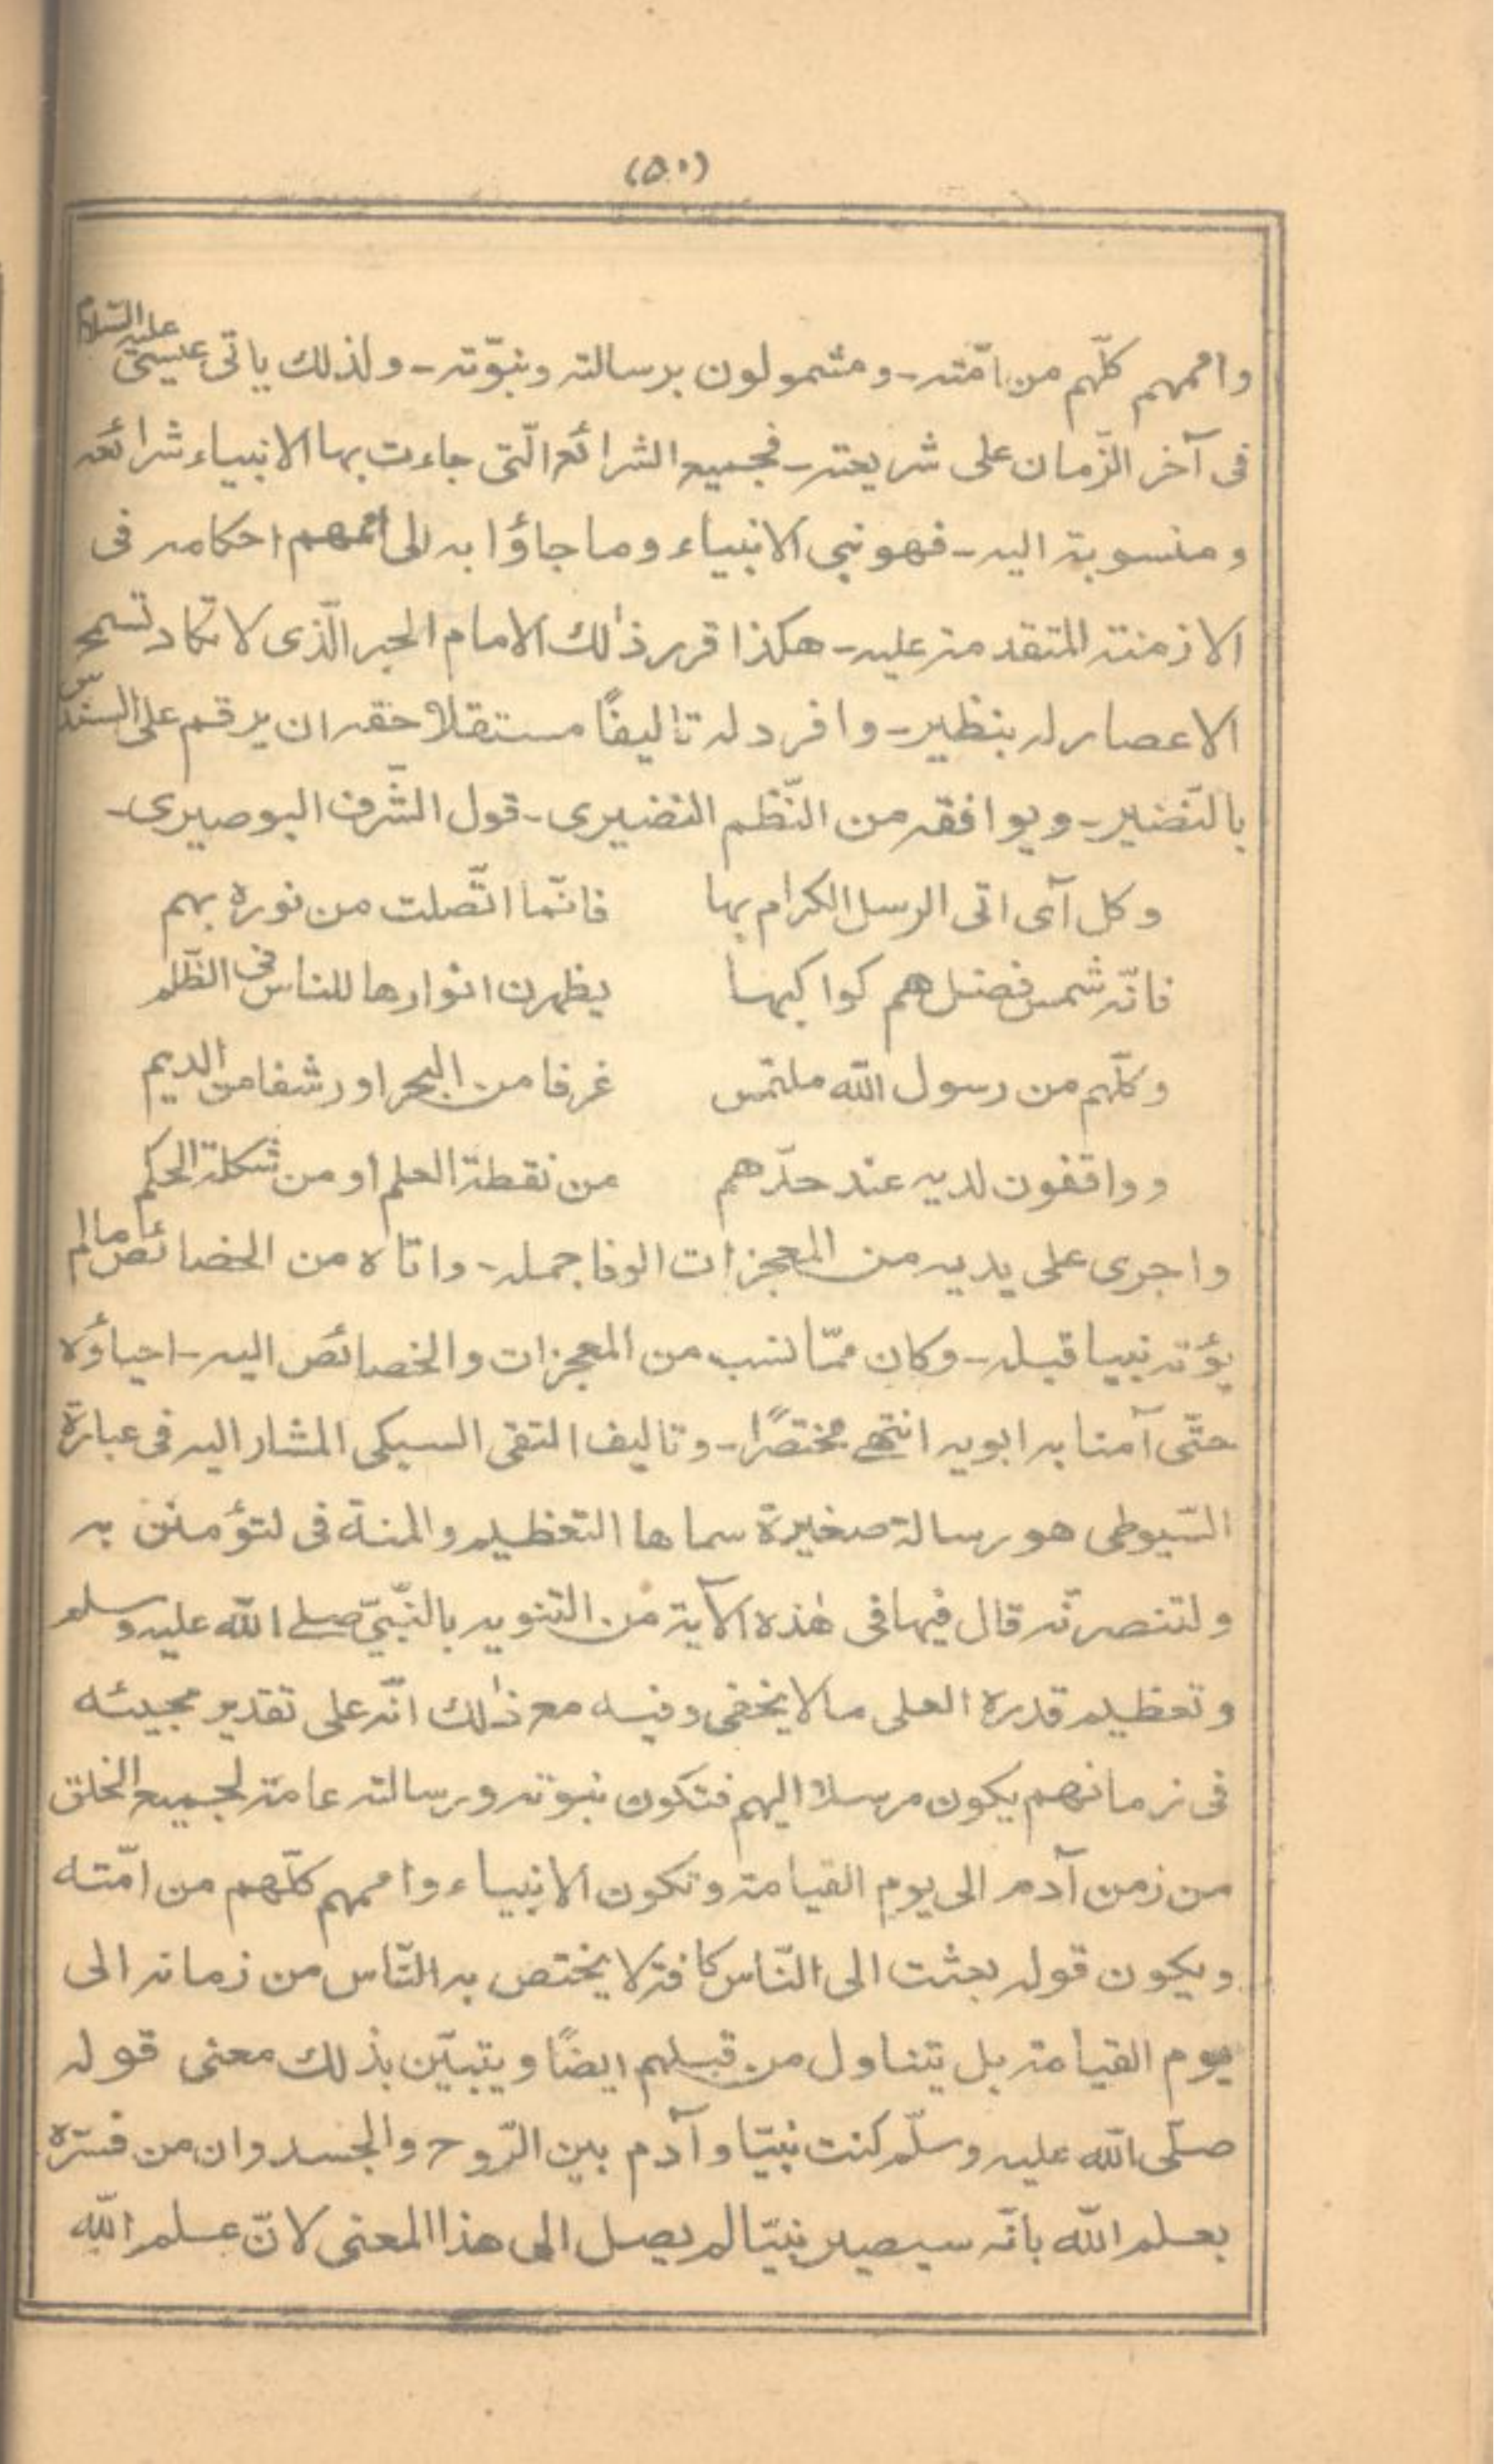 (٥٠)
واممهم كلّهم من امّته۔ ومشمولون برسالته ونبوّته۔ ولذلك ياتى عيسىٰ عليه السّلام
فى آخر الزّمان على شريعته۔ فجميع الشرائع الّتى جاءت بها الانبياء شرائعه
ومنسوبة اليه۔ فهو نبى الانبياء وما جاؤا به الى اممهم احكامه فى
الازمنة المتقدمة عليه۔ هكذا قرر ذٰلك الامام الحبر الّذى لا تكاد تسمح
الاعصار له بنظير۔ وافرد له تاليفًا مستقلا حقه ان يرقم على السندس
بالنّضير۔ ويوافقه من النّظم النضيرى۔ قول الشّرف البوصيرى۔
وكل آى اتى الرسل الكرام بها فانّما اتّصلت من نوره بهم
فانّه شمس فضل هم كواكبها يظهرن انوارها للناس فى الظّلم
وكلّهم من رسول الله ملتمس غرفا من البحر او رشفا من الديم
وواقفون لديه عند حدّهم من نقطة العلم او من شكلة الحكم
واجرى على يديه من المعجزات الوفا جمله۔ واتاه من الخصائص مالم
يؤته نبيا قبله۔ وكان ممّا نسب من المعجزات والخصائص اليه۔ احياؤه
حتّى آمنا به ابويه انتهى مختصرًا۔ وتاليف التقى السبكى المشار اليه فى عبارة
السّيوطى هو رسالة صغيرة سماها التعظيم والمنة فى لتؤمنن به
ولتنصرنّه قال فيها فى هٰذه الآية من التنويه بالنّبىّ صلے الله عليه وسلم
وتعظيم قدره العلى ما لا يخفى وفيه مع ذٰلك انّه على تقدير مجيئه
فى زمانهم يكون مرسلا اليهم فتكون نبوته ورسالته عامة لجميع الخلق
من زمن آدم الى يوم القيامة وتكون الانبياء واممهم كلّهم من امّته
ويكون قوله بعثت الى النّاس كافة لا يختص به النّاس من زمانه الى
يوم القيامة بل يتناول من قبلهم ايضًا ويتبيّن بذلك معنى قوله
صلّى الله عليه وسلّم كنت نبيّا وآدم بين الرّوح والجسد وان من فسّره
بعلم الله بانّه سيصير نبيّا لم يصل الى هذا المعنى لانّ علم الله